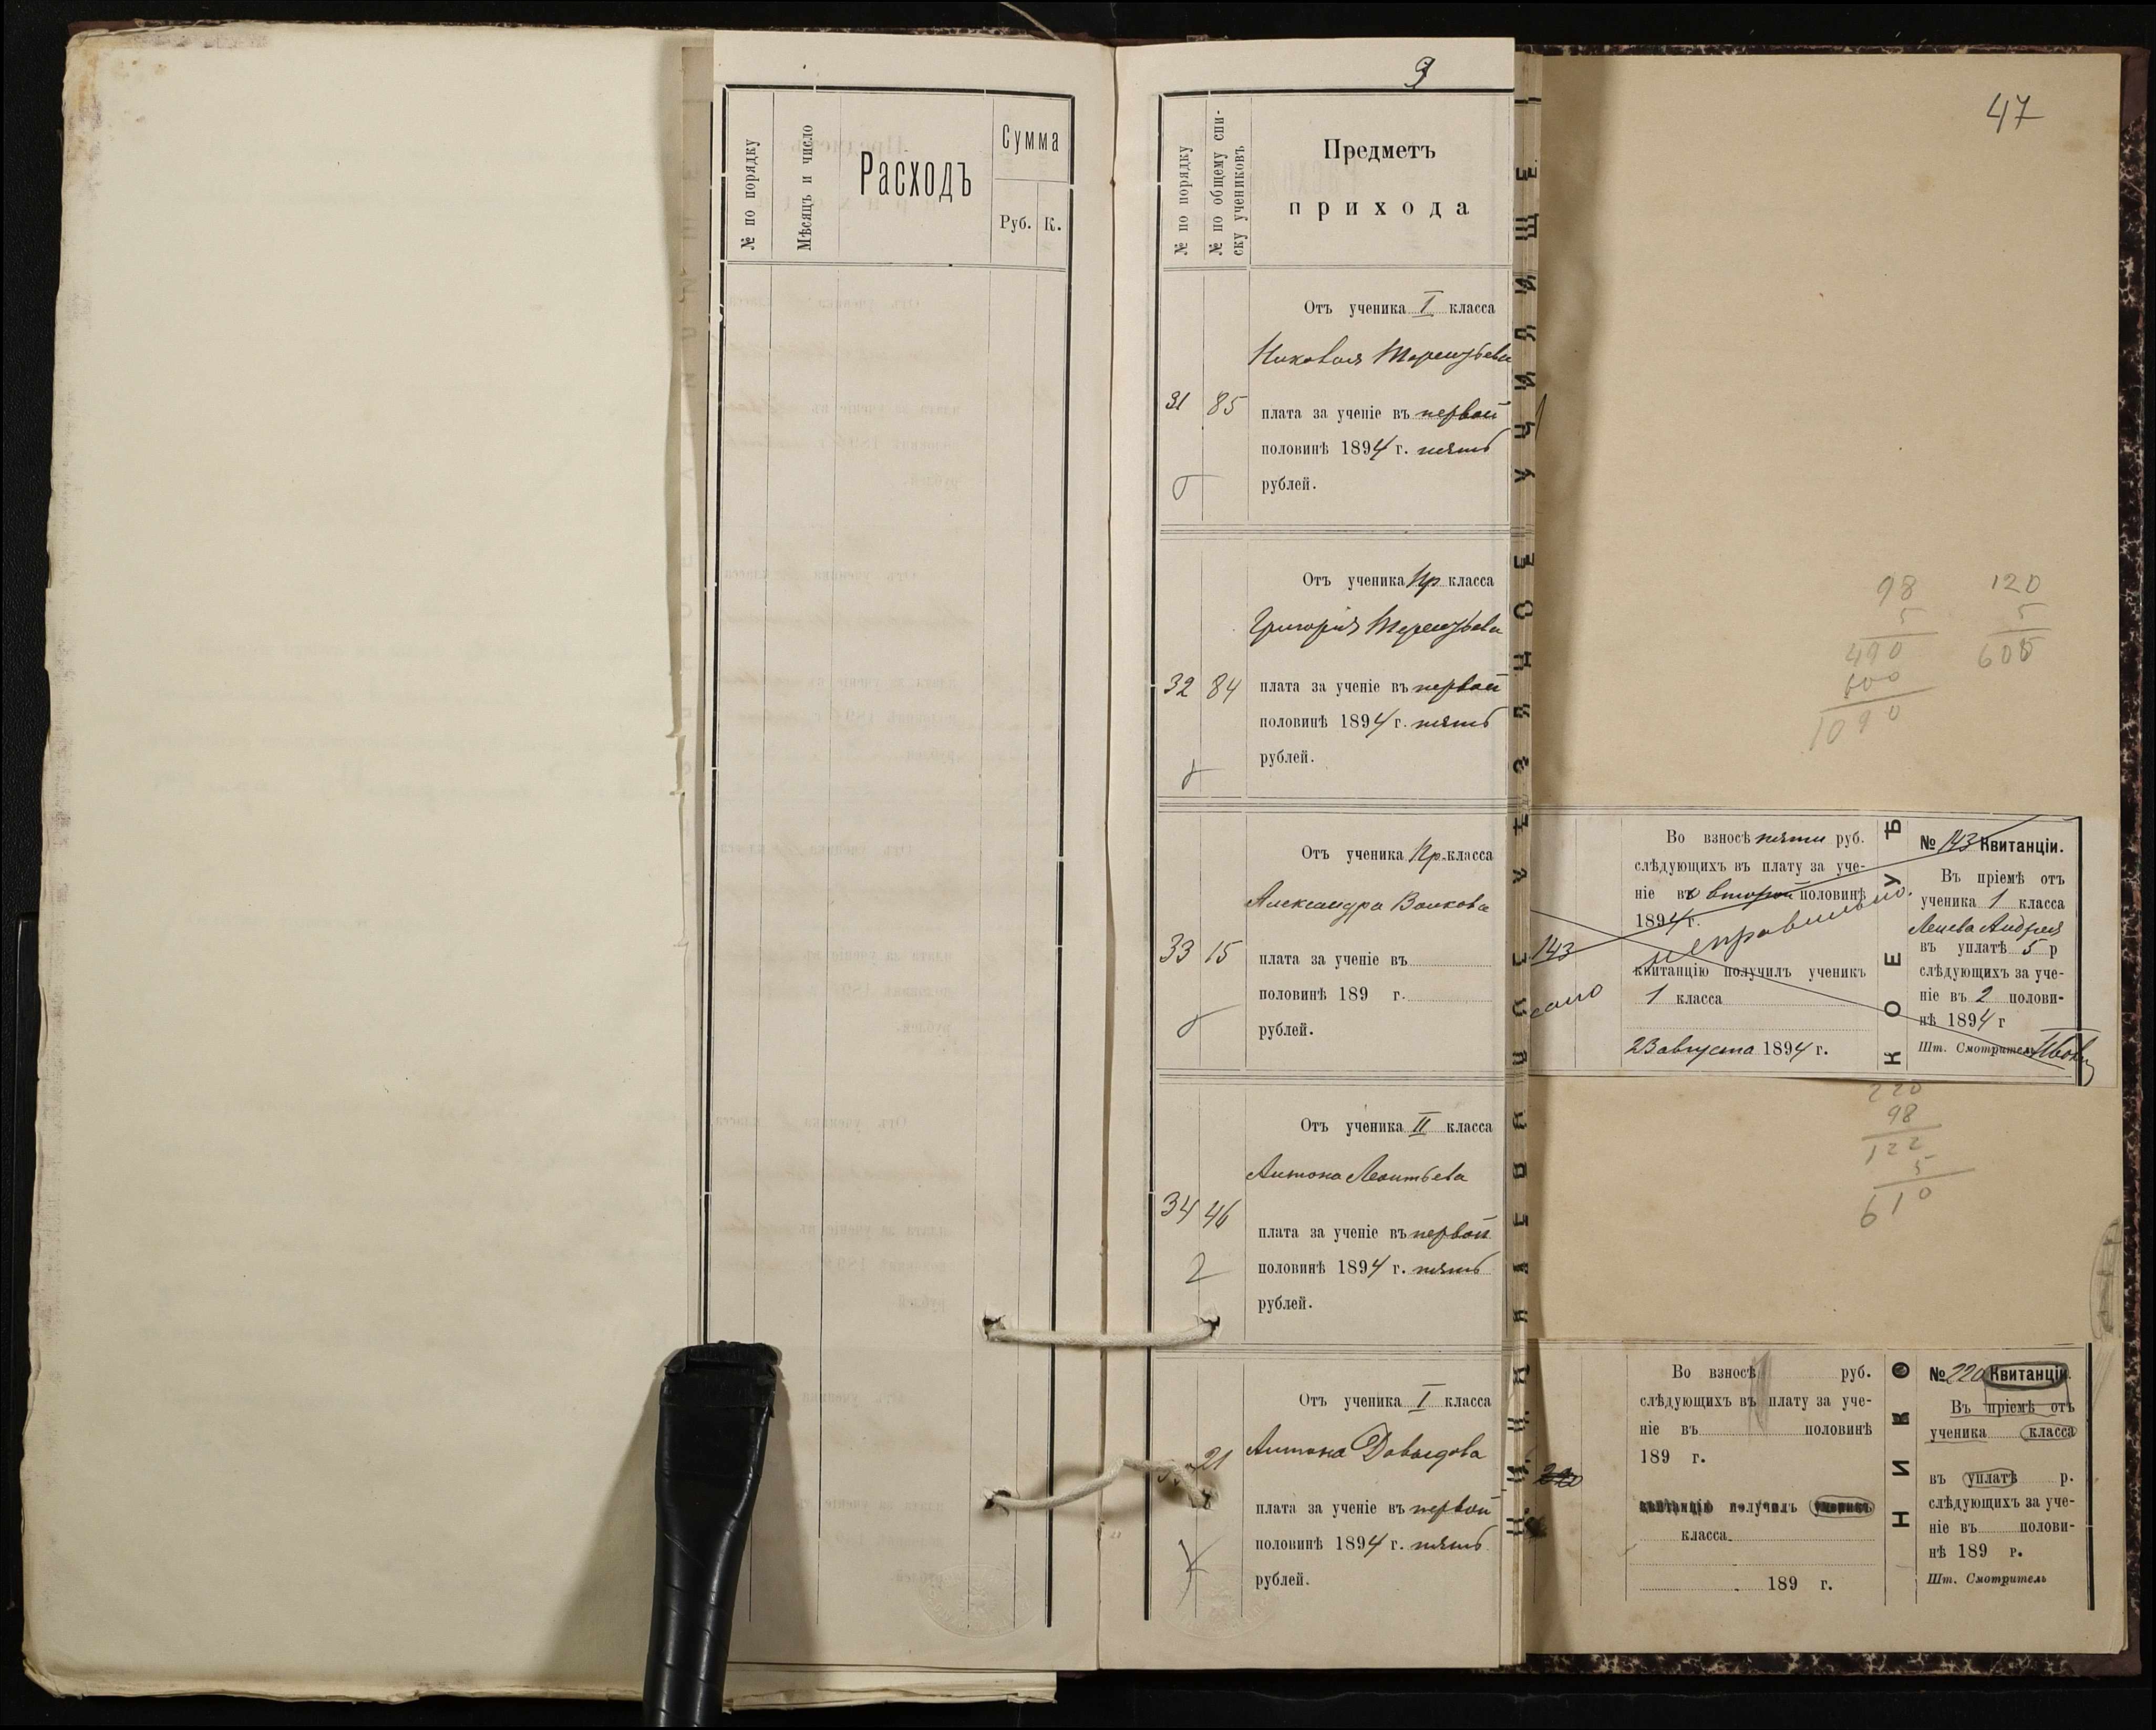 № по порядку
Мѣсяцъ и число
Расходъ
Сумма
Руб. К.
9
№ по порядку
№ по общему спи-
ску учениковъ
Предметъ
прихода
Отъ ученика I класса
Николая Терентьева
31 85
плата за ученіе въ первой
половинѣ 1894 г. пять
рублей.
Отъ ученика Пр. класса
Григорія Терентьева
32 84
плата за ученіе въ первой
половинѣ 1894 г. пять
рублей.
Отъ ученика Пр. класса
Александра Волкова
33 15
плата за ученіе въ
половинѣ 189 г.
рублей.
Отъ ученика II класса
Антона Леонтьева
34 46
плата за ученіе въ первой
половинѣ 1894 г. пять
2
рублей.
Отъ ученика I класса
Антона Давыдова
21
плата за ученіе въ первой
половинѣ 1894 г. пять
рублей.
47
98
5
490
600
1090
120
5
600
Во взносѣ пяти руб.
слѣдующихъ въ плату за уче-
ніе во второй половинѣ
1894 г.
неправильно.
143
квитанцію получилъ ученикъ
1 класса
23 августа 1894 г.
КОЕ УѢ
№ 143 Квитанціи.
Въ пріемѣ отъ
ученика 1 класса
Андрея
въ уплатѣ 5 р
слѣдующихъ за уче-
ніе въ 2 полови-
нѣ 1894 г
Шт. Смотритель
220
98
122
5
610
Во взносѣ руб.
слѣдующихъ въ плату за уче-
ніе въ половинѣ
189 г.
220
квитанцію получилъ ученикъ
класса
189 г.
НИКО
№ 220 Квитанціи.
Въ пріемѣ отъ
ученика класса
въ уплатѣ р.
слѣдующихъ за уче-
ніе въ полови-
нѣ 189 г.
Шт. Смотритель